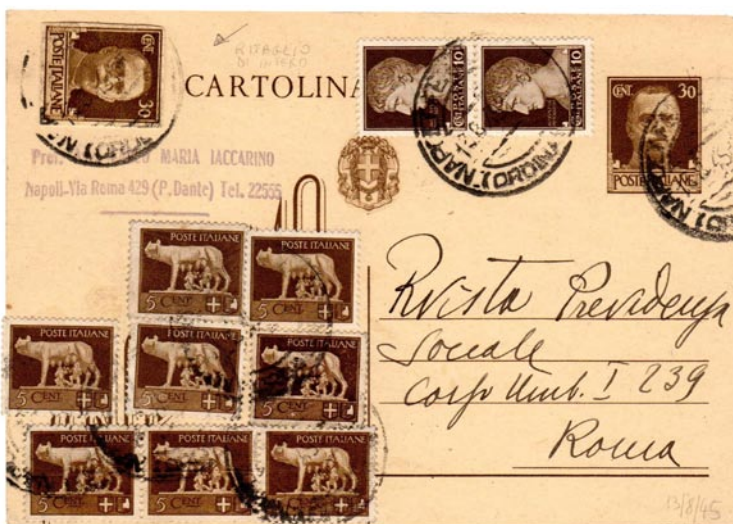 RITAGLIO
DI INTERO
CENT. 30
POSTE ITALIANE
CARTOLINA
10
POSTE ITALIANE
10
POSTE ITALIANE
CENT. 30
POSTE ITALIANE
NAPOLI
Prof. MARIA IACCARINO
Napoli-Via Roma 429 (P. Dante) Tel. 22555
POSTE ITALIANE
5 CENT.
POSTE ITALIANE
5 CENT.
POSTE ITALIANE
5 CENT.
POSTE ITALIANE
5 CENT.
POSTE ITALIANE
5 CENT.
POSTE ITALIANE
5 CENT.
POSTE ITALIANE
5 CENT.
POSTE ITALIANE
5 CENT.
Rivista Previdenza
Sociale
Corso Umb. I 239
Roma
13/8/45